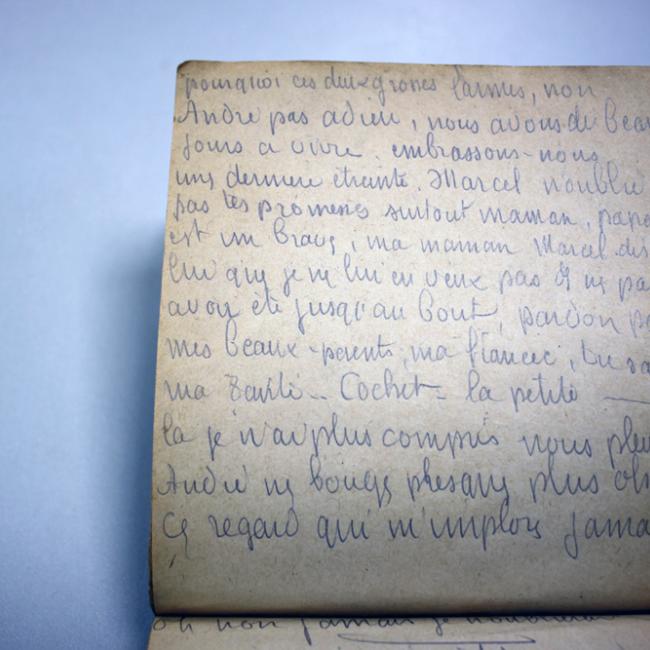 pourquoi ces deux grosses larmes, non
André pas adieu, nous avons de beau
jours a vivre. embrassons-nous
une derniere étreinte. Marcel n'oublie
pas tes promesses surtout maman, papa
est un brave, ma maman Marcel dis
lui que je ne lui en veux pas de ne pa
avoir été jusqu'au bout, pardon p
mes beaux-parents, ma fiancée, tu sa
ma Cochet - la petite —
la je n'ai plus compris nous pleu
André ne bouge presque plus oh
ce regard qui m'implore jama
oh non jamais je